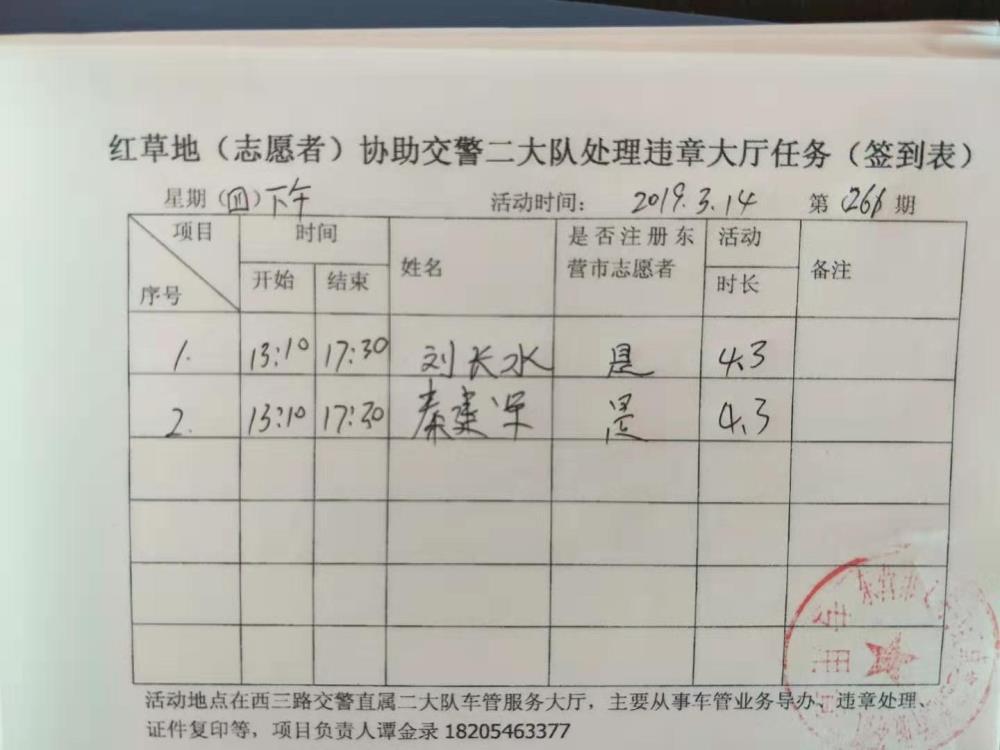 红草地（志愿者）协助交警二大队处理违章大厅任务（签到表）
星期（四）下午 活动时间： 2019.3.14 第（266）期
项目 时间 姓名 是否注册东 活动 备注
营市志愿者
序号 开始 结束 时长
1. 13:10 17:30 刘长水 是 4.3
2. 13:10 17:30 秦建军 是 4.3
活动地点在西三路交警直属二大队车管服务大厅，主要从事车管业务导办、违章处理、
证件复印等，项目负责人谭金录 18205463377